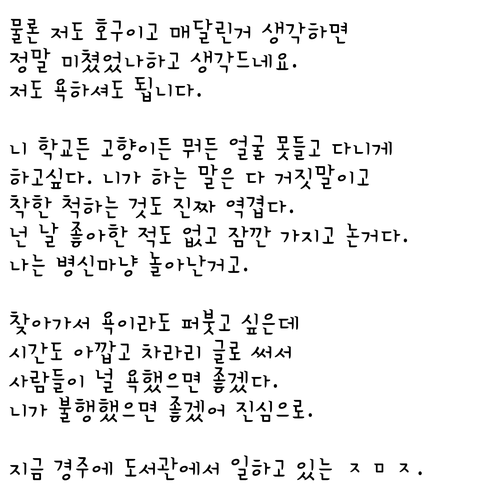 물론 저도 호구이고 매달린거 생각하면
정말 미쳤었나하고 생각드네요.
저도 욕하셔도 됩니다.
니 학교든 고향이든 뭐든 얼굴 못들고 다니게
하고싶다. 니가 하는 말은 다 거짓말이고
착한 척하는 것도 진짜 역겹다.
넌 날 좋아한 적도 없고 잠깐 가지고 논거다.
나는 병신마냥 놀아난거고.
찾아가서 욕이라도 퍼붓고 싶은데
시간도 아깝고 차라리 글로 써서
사람들이 널 욕했으면 좋겠다.
니가 불행했으면 좋겠어 진심으로.
지금 경주에 도서관에서 일하고 있는 ㅈ ㅁ ㅈ.